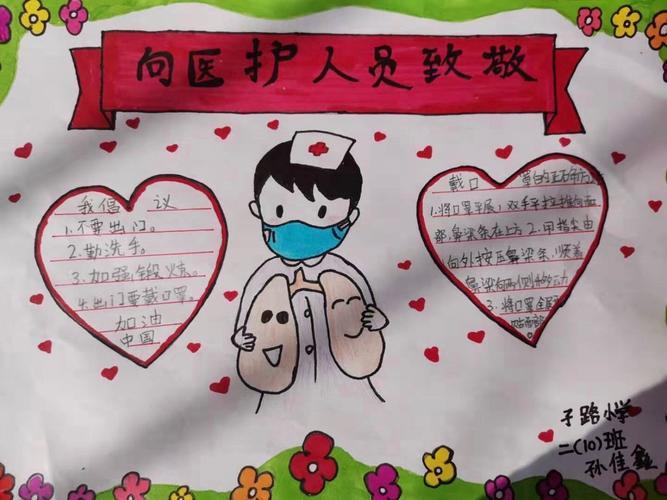 向医护人员致敬
我倡议
1.不要出门。
2.勤洗手。
3.加强锻炼。
4.出门要戴口罩。
加油
中国
戴口罩的正确
1.将口罩平展,双手平拉推向面
部,鼻梁条在上方2.用指尖由
向外按压鼻梁条,顺着
鼻梁向两侧移动
3.将口罩全
子路小学
二(10)班
孙佳鑫